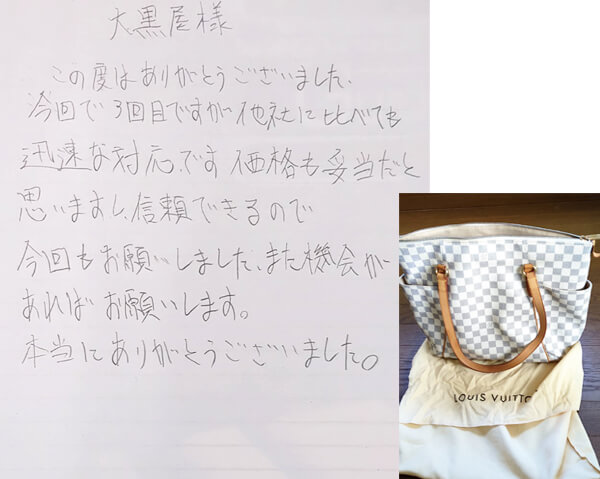 大黒屋様
この度はありがとうございました、
今回で3回目ですが他社に比べても
迅速な対応です 価格も妥当だと
思いますし、信頼できるので
今回もお願いしました、また機会が
あればお願いします。
本当にありがとうございました。
LOUIS VUITTON